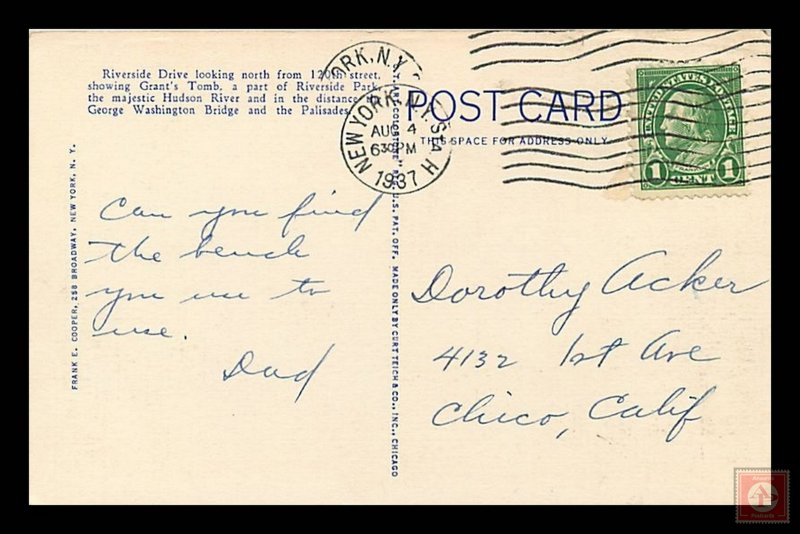 Riverside Drive looking north from 120th street,
showing Grant's Tomb, a part of Riverside Park,
the majestic Hudson River and in the distance the
George Washington Bridge and the Palisades.
FRANK E. COOPER, 258 BROADWAY, NEW YORK, N. Y.
Can you find
the bench
you use to
use.
Dad
REG. U.S. PAT. OFF. MADE ONLY BY CURT TEICH & CO., INC., CHICAGO
NEW YORK, N.Y.
AUG 4
630PM
1937
POST CARD
THIS SPACE FOR ADDRESS ONLY
UNITED STATES POSTAGE
1 CENT 1
Dorothy Acker
4132 1st Ave
Chico, Calif